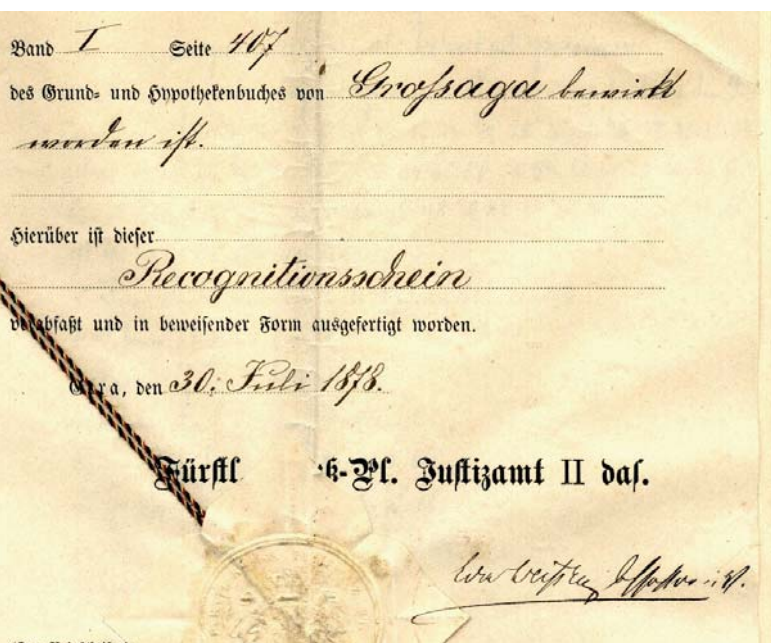 Band I Seite 407
des Grund- und Hypothekenbuches von Grossaga bewirkt
worden ist.
Hierüber ist dieser
Recognitionsschein
verabfaßt und in beweisender Form ausgefertigt worden.
Gera, den 30. Juli 1878.
Fürstl ß-Pl. Justizamt II das.